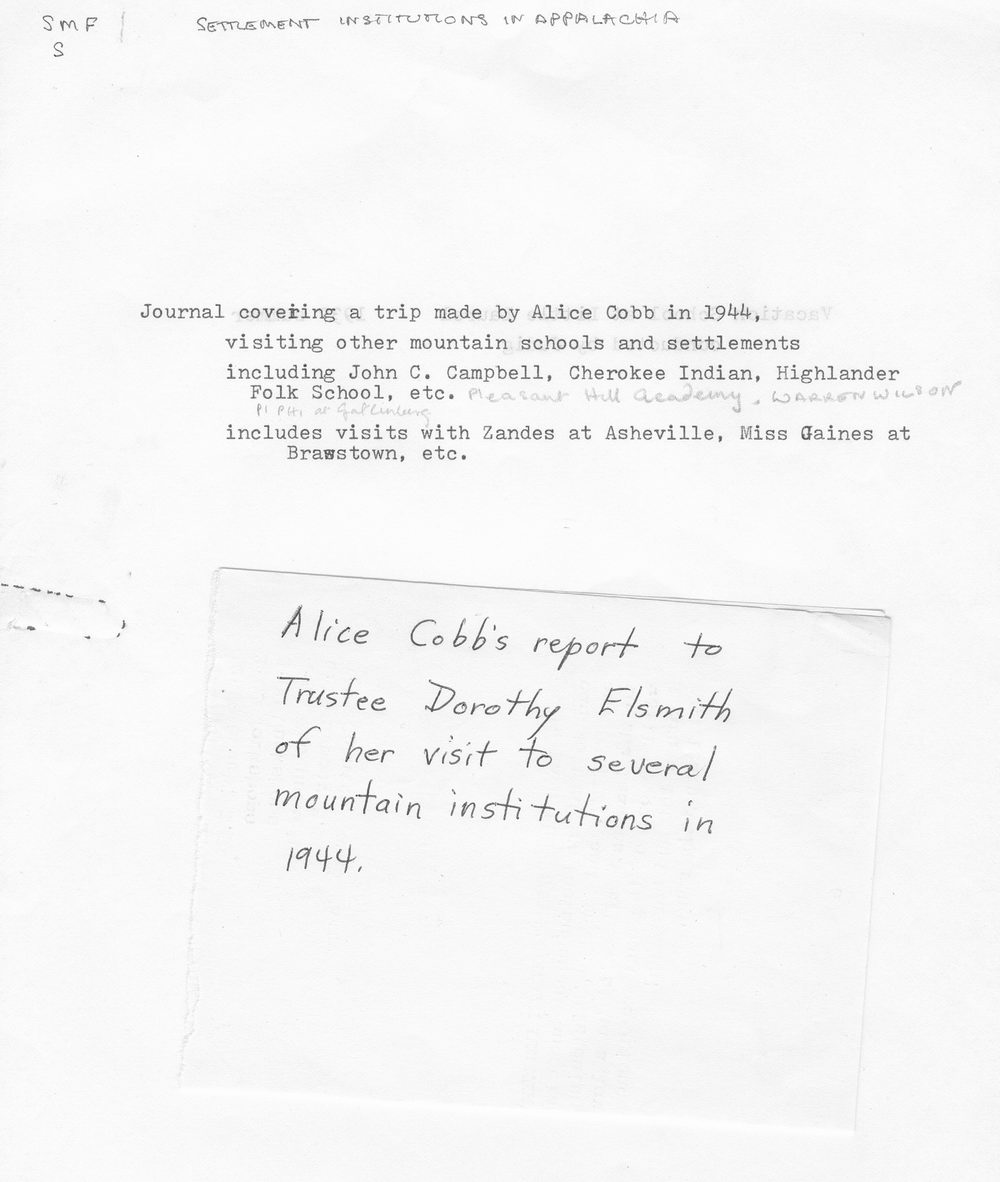 SMF
S
SETTLEMENT INSTITUTIONS IN APPALACHIA
Journal covering a trip made by Alice Cobb in 1944,
visiting other mountain schools and settlements
including John C. Campbell, Cherokee Indian, Highlander
Folk School, etc. Pleasant Hill Academy, WARREN WILSON
PI PHI at Gatlinburg
includes visits with Zandes at Asheville, Miss Gaines at
Brasstown, etc.
Alice Cobb's report to
Trustee Dorothy Elsmith
of her visit to several
mountain institutions in
1944.